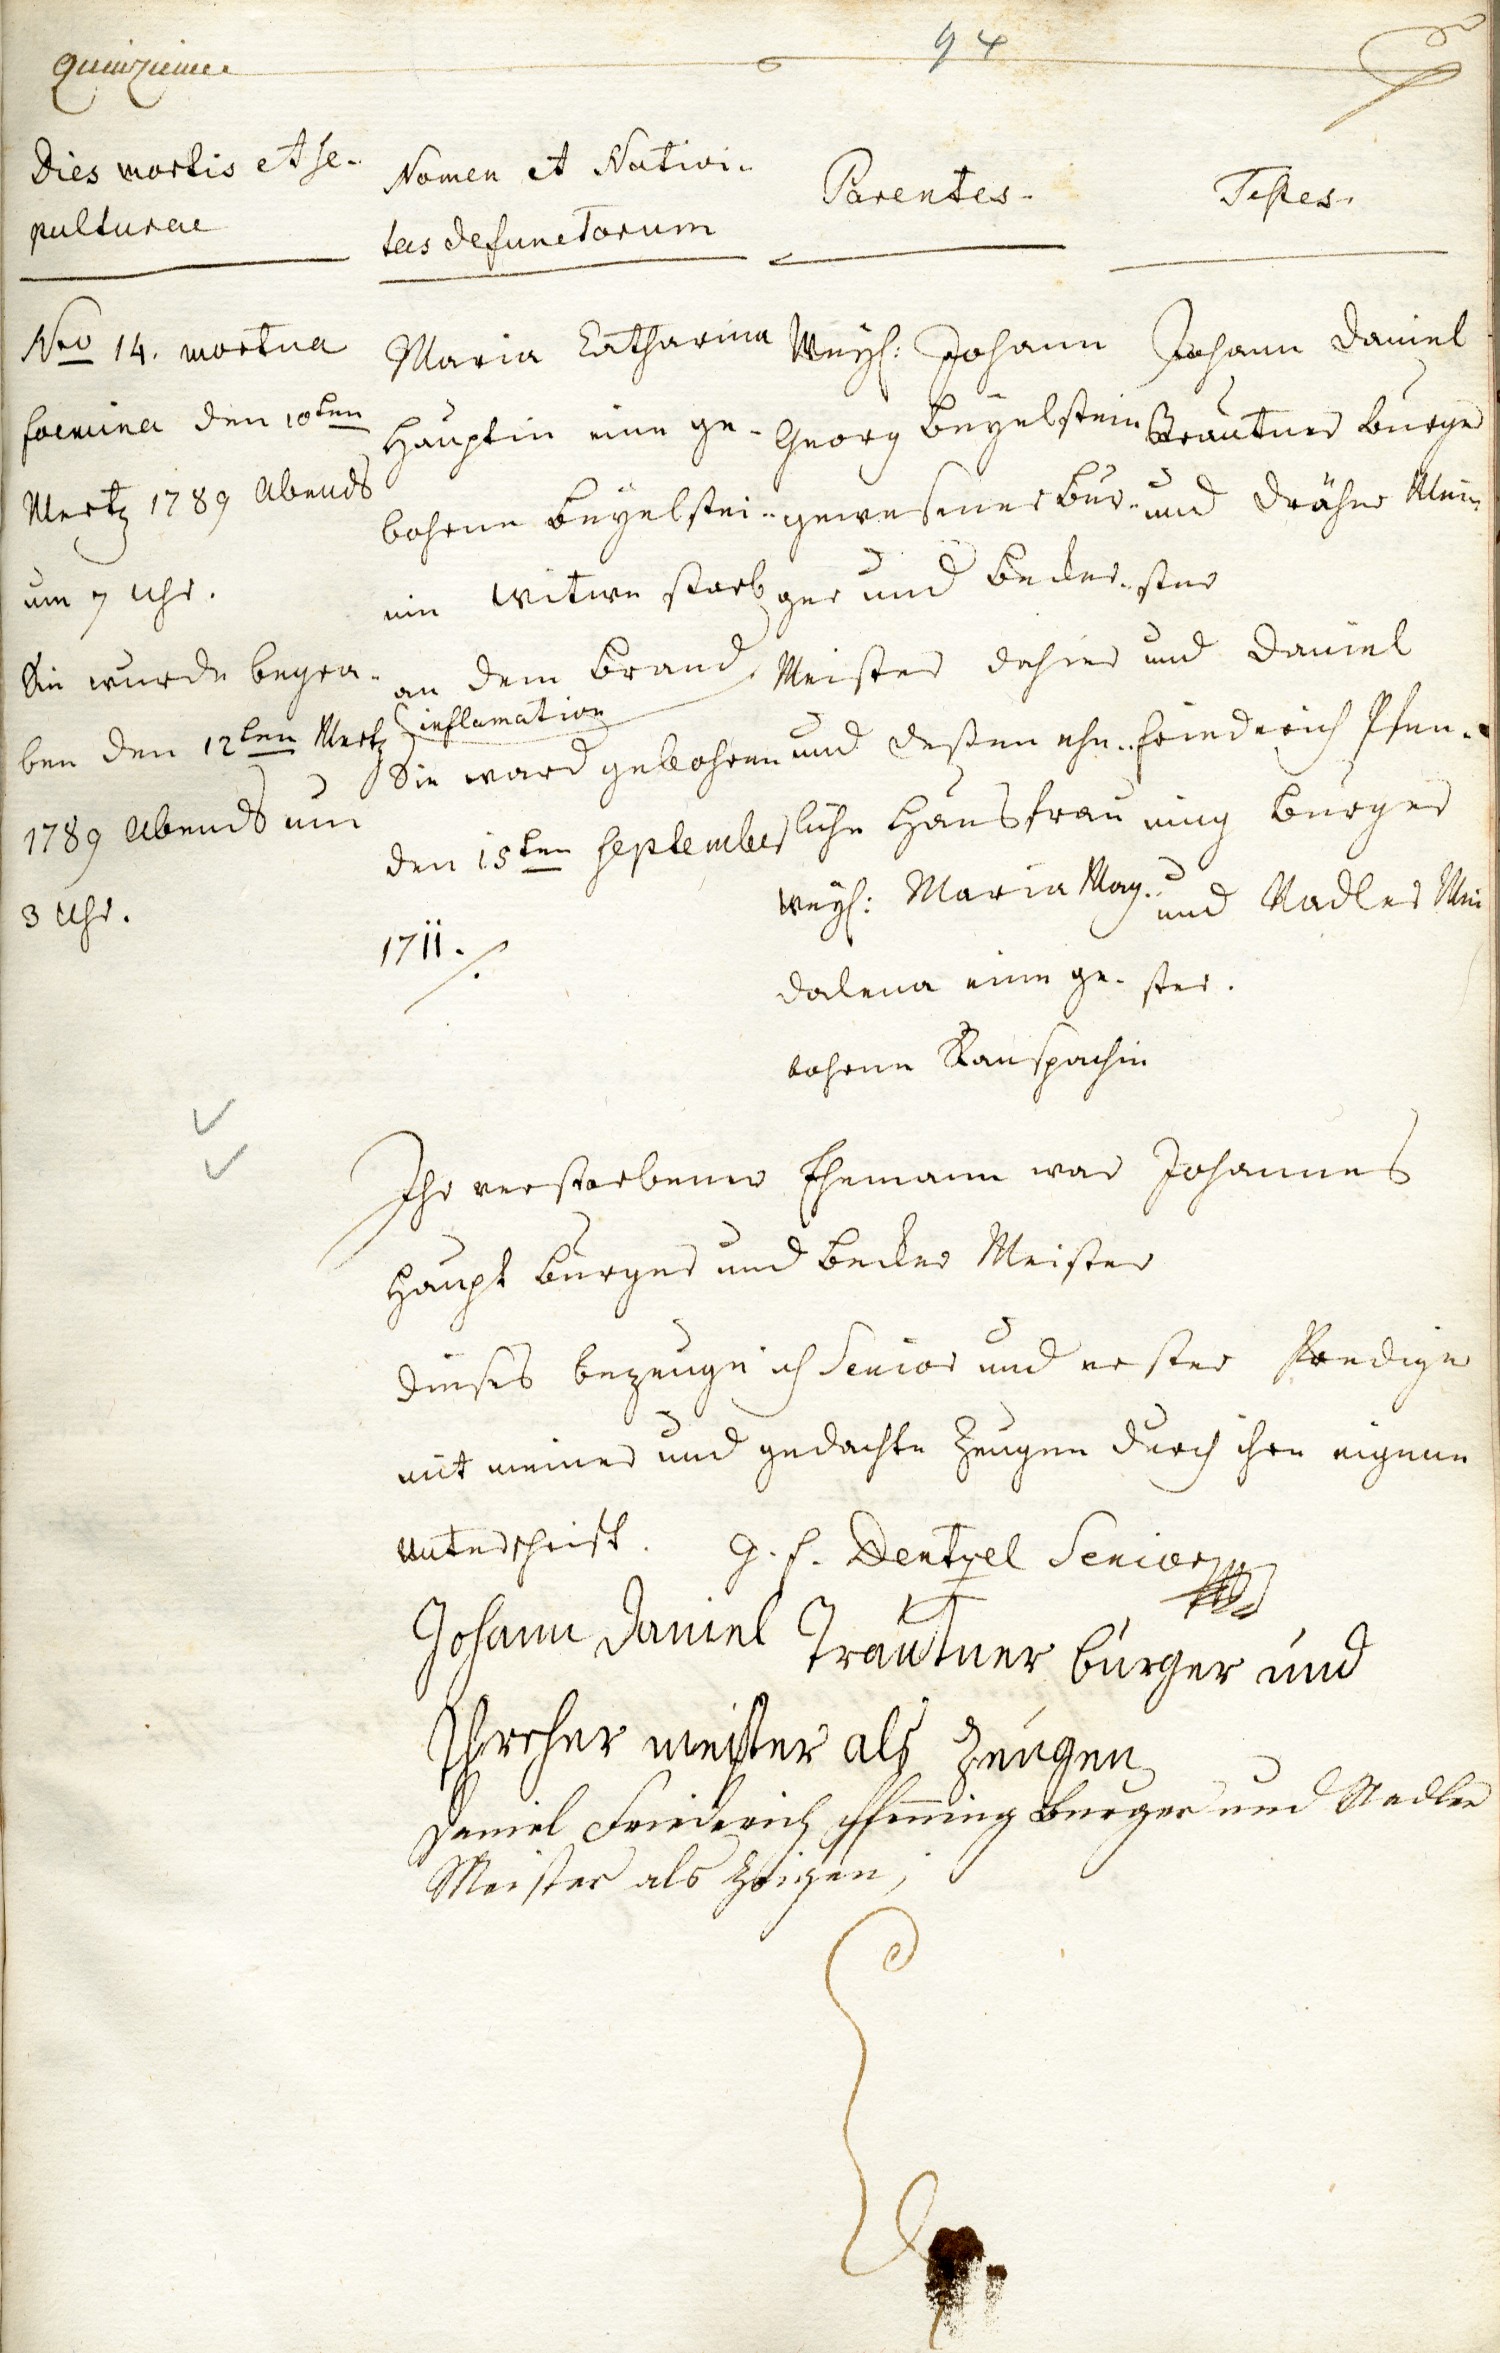 quinzieme
94
Dies mortis et se-
pulturae
Nro 14. mortua
foemina den 10ten
Mertz 1789 Abends
um 7 Uhr.
Sie wurde begra-
ben den 12ten Mertz
1789 Abends um
3 Uhr.
Nomen et Nativi-
tas defunctorum
Maria Catharina
Hauptin eine ge-
bohrne Beyelstei-
nin Witwe starb
an dem Brand
inflamation
Sie ward gebohren
den 15ten September
1711.
Parentes.
Weyl: Johann
Georg Beyelstein
gewesener Bur-
ger und Becker
Meister dahier
und dessen ehe-
liche Hausfrau
weyl: Maria Mag-
dalena eine ge-
bohrne Ranspachin
Testes.
Johann Daniel
Trautner Burger
und Dräher Mei-
ster
und Daniel
Friederich Pfen-
ning Burger
und Nadler Mei
ster.
Ihr verstorbener Ehemann war Johannes
Haupt Burger und Becker Meister
dieses bezeuge ich Senior und erster Prediger
mit meiner und gedachte Zeugen durch ihre eigene
Unterschrift. G. F. Dentzel Senior
Johann Daniel Trautner burger und
Threher meister als Zeugen
Daniel Friederich Pfenning Burger und Nadler
Meister als Zeigen,